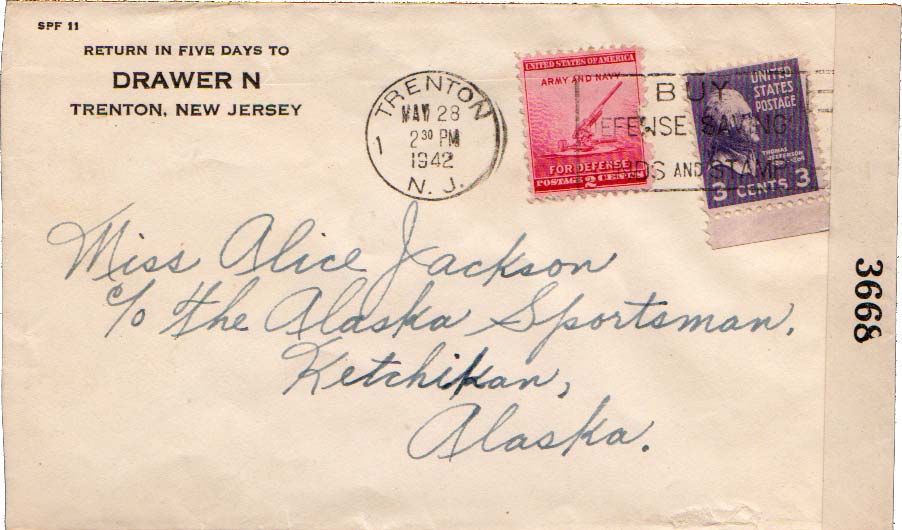 SPF 11
RETURN IN FIVE DAYS TO
DRAWER N
TRENTON, NEW JERSEY
TRENTON
1
MAY 28
2 30 PM
1942
N. J.
UNITED STATES OF AMERICA
ARMY AND NAVY
FOR DEFENSE
POSTAGE 2 CENTS
BUY
EFENSE SAVING
NDS AND STAMP
UNITED
STATES
POSTAGE
THOMAS JEFFERSON
3 CENTS 3
Miss Alice Jackson
c/o The Alaska Sportsman,
Ketchikan,
Alaska.
3668